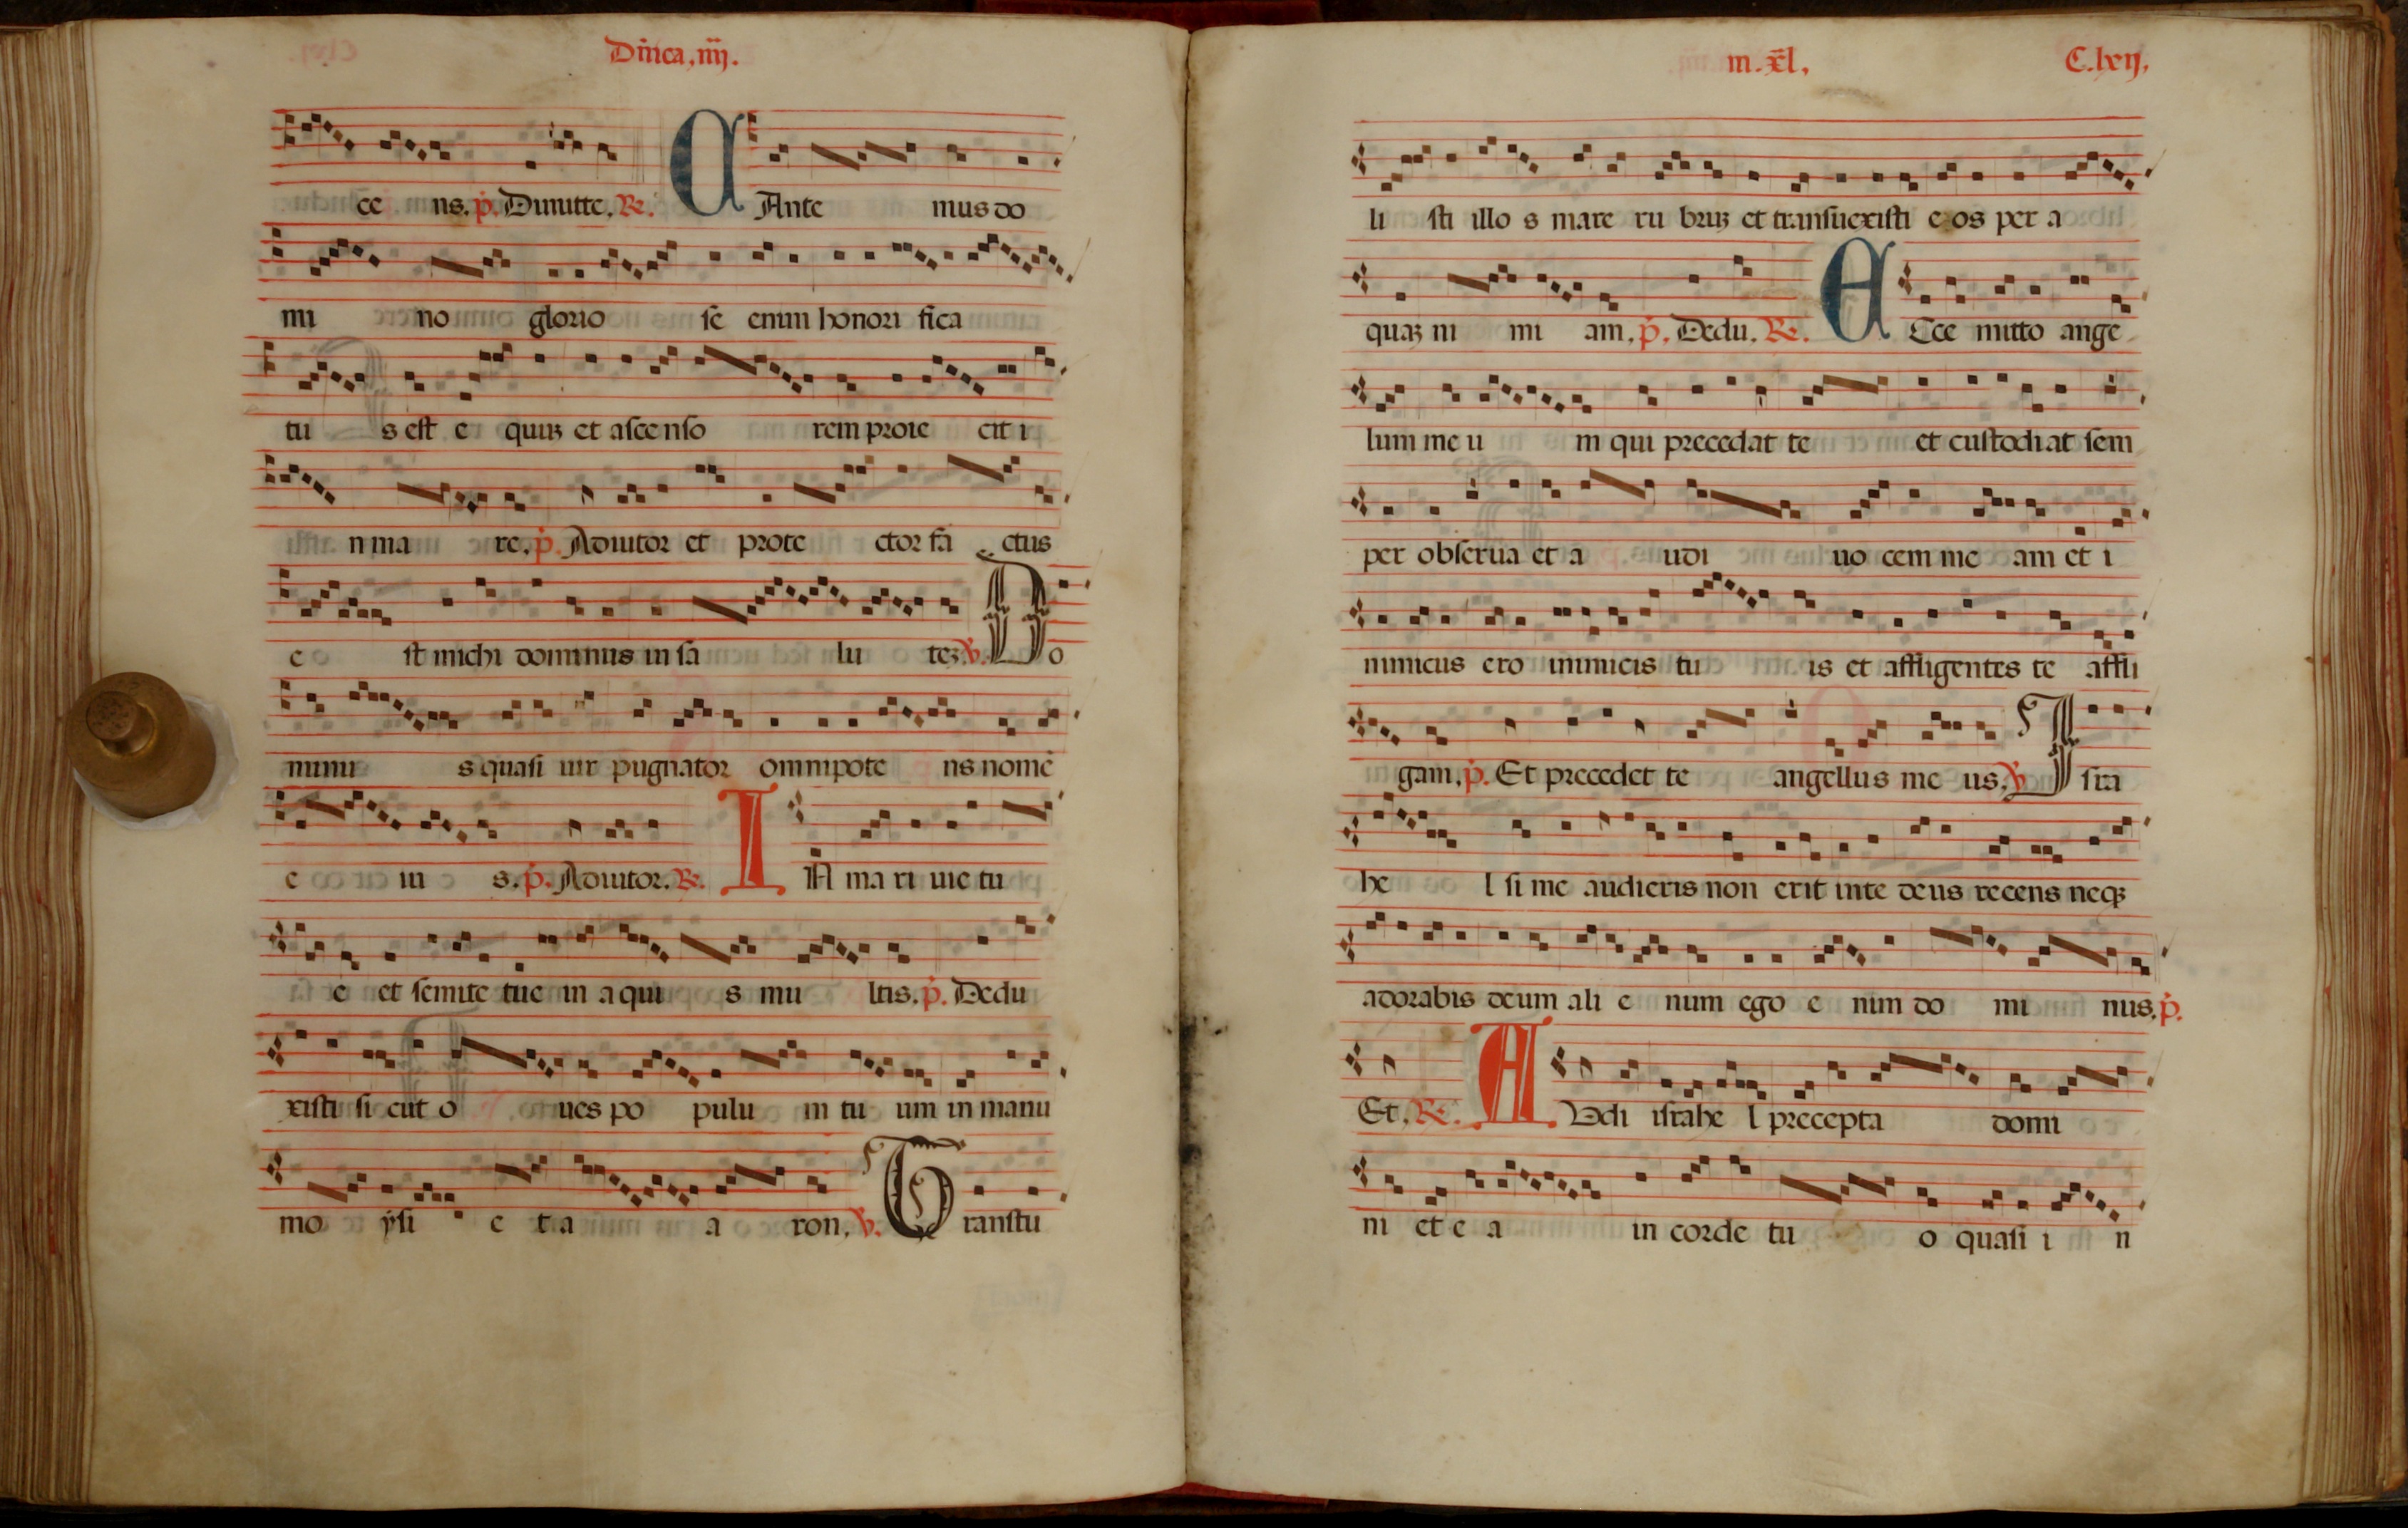 Dñica. iiij.
ce ns. p̄. Dimitte. R̄.
C Ante mus do
mi no glorio se enim honori fica
tu s est e quuz et ascenso rem proie cit i
n ma re. p̄. Adiutor et prote ctor fa ctus
e st michi dominus in sa lu tez. v̄. D o
minu s quasi uir pugnator omnipote ns nomē
e iu s. p̄. Adiutor. R̄. I N ma ri uie tu
e et semite tue in a qui s mu ltis. p̄. Dedu
xisti si cut o ues po pulu m tu um in manu
mo ysi e t a a ron. v̄. T ranstu
in. xl̄.
C.lxij.
li sti illo s mare ru bruz et transuexisti e os per a
quaz ni mi am. p̄. Dedu. R̄. E Cce mitto ange
lum me u m qui precedat te et custodiat sem
per obserua et a udi uo cem me am et i
nimicus ero inimicis tu is et affligentes te affli
gam. p̄. Et precedet te angellus me us. v̄. I sra
he l si me audieris non erit in te deus recens neqz
adorabis deum ali e num ego e nim do mi nus. p̄.
Et. R̄. A Udi israhe l precepta domi
ni et e a in corde tu o quasi i n